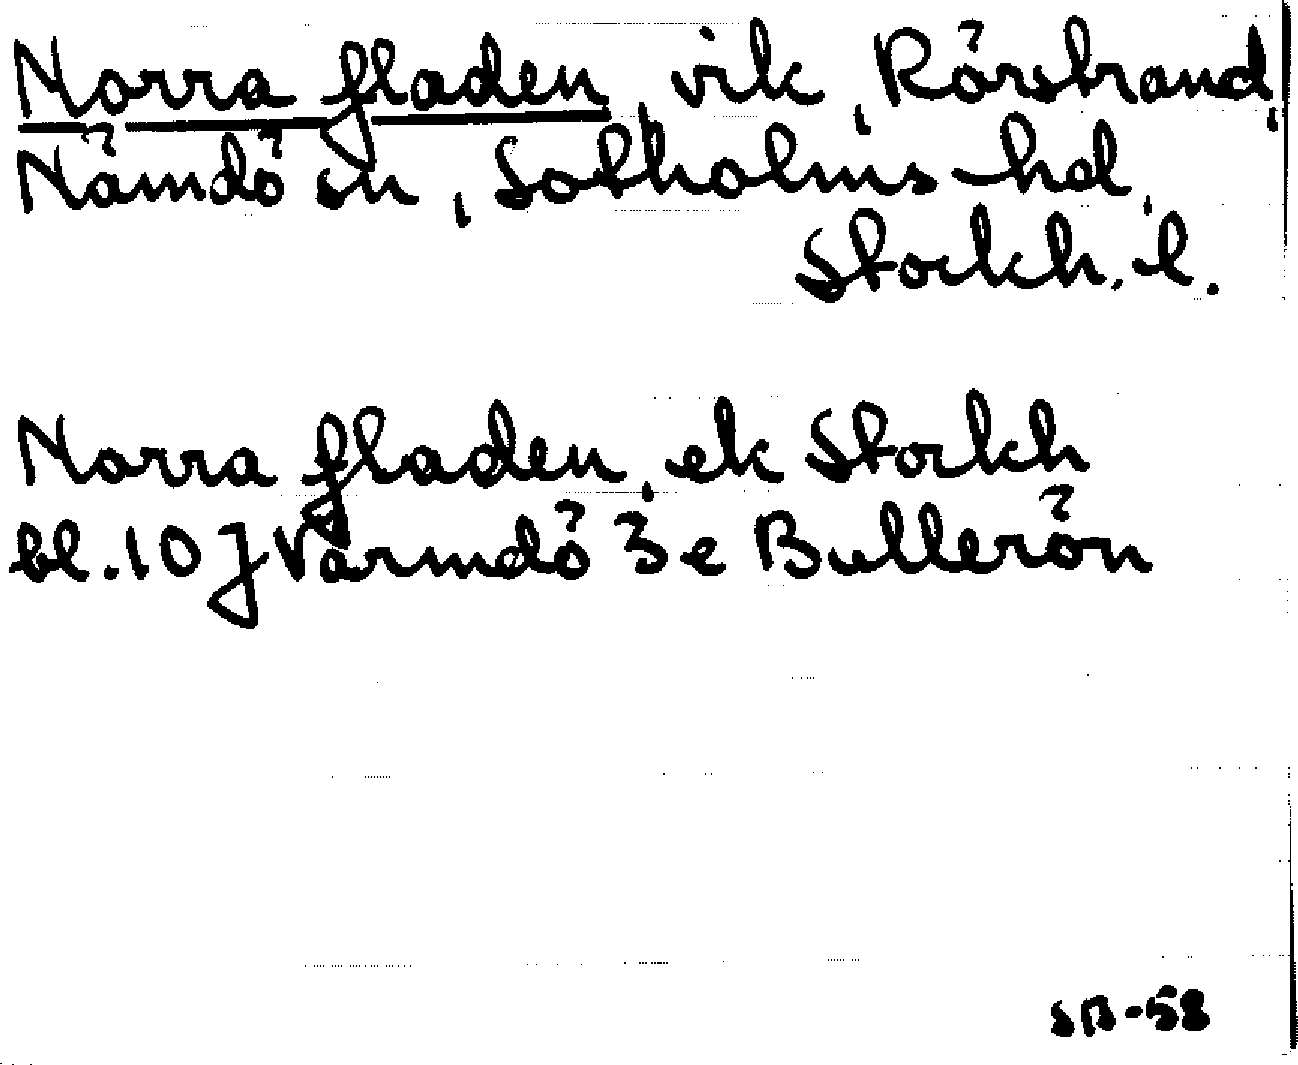 Norra fladen, vik, Rörstrand,
Nämdö sn, Sotholms-hd,
Stockh. l.
Norra fladen, ek Stockh
bl. 10 J Värmdö 3 e Bullerön
SB-58